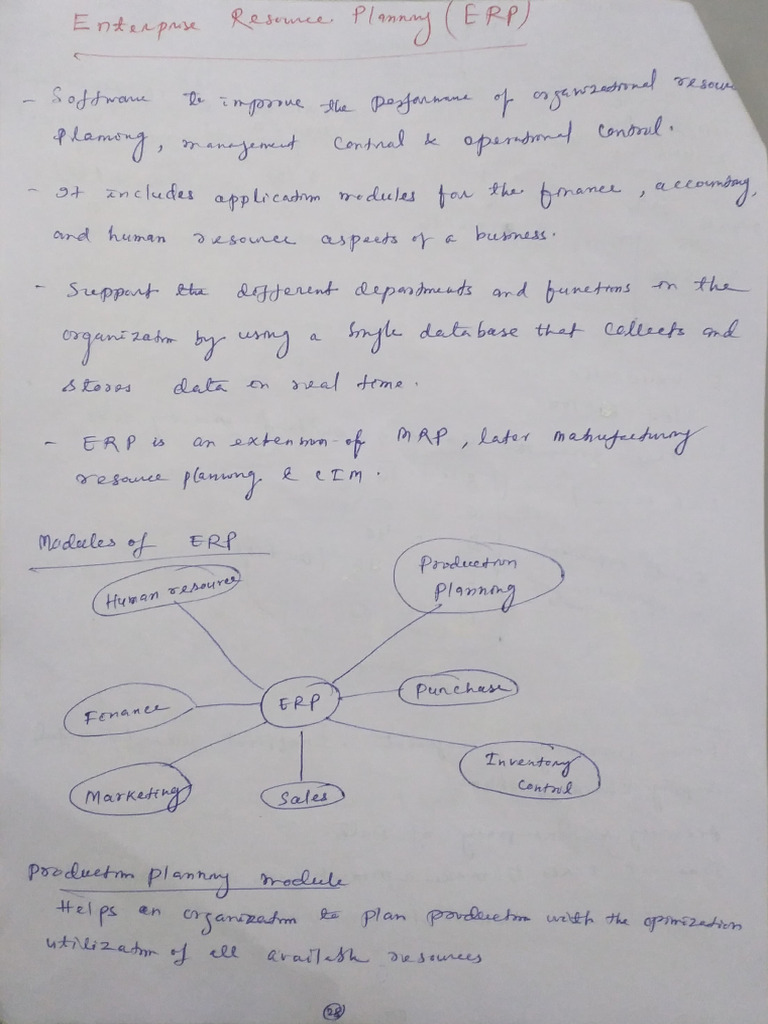 Enterprise Resource Planning (ERP)
- Software to improve the performance of organizational resource
planning, management control & operational control.
- It includes application modules for the finance, accounting,
and human resource aspects of a business.
- Support the different departments and functions in the
organization by using a single database that collects and
stores data in real time.
- ERP is an extension of MRP, later manufacturing
resource planning & CIM.
Modules of ERP
Human resource
Production
Planning
Finance
ERP
Purchase
Marketing
Sales
Inventory
Control
Production planning module
Helps an organization to plan production with the opimization
utilization of all available resources
28